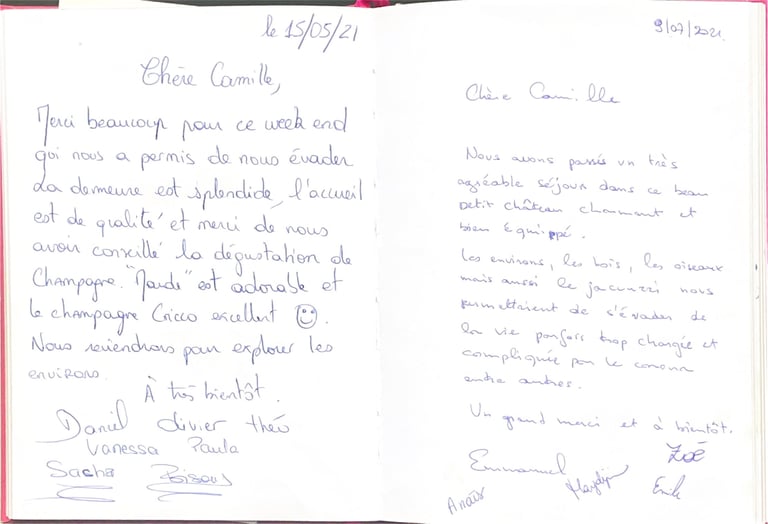 le 15/05/21
Chère Camille,
Merci beaucoup pour ce week end
qui nous a permis de nous évader
La demeure est splendide, l'accueil
est de qualité et merci de nous
avoir conseillé la dégustation de
Champagne. "Maude" est adorable et
le champagne Cricco excellent ☺.
Nous reviendrons pour explorer les
environs.
À très bientôt.
Daniel Olivier théo
Vanessa Paula
Sacha Bisous
9/07/2021.
Chère Camille
Nous avons passés un très
agréable séjour dans ce beau
petit château charmant et
bien équippé.
Les environs, les bois, les oiseaux
mais aussi le jacuzzi nous
permettaient de s'évader de
la vie parfois trop chargée et
compliquée par le corona
entre autres.
Un grand merci et à bientôt.
Emmanuel Zoé
Anaïs Emile